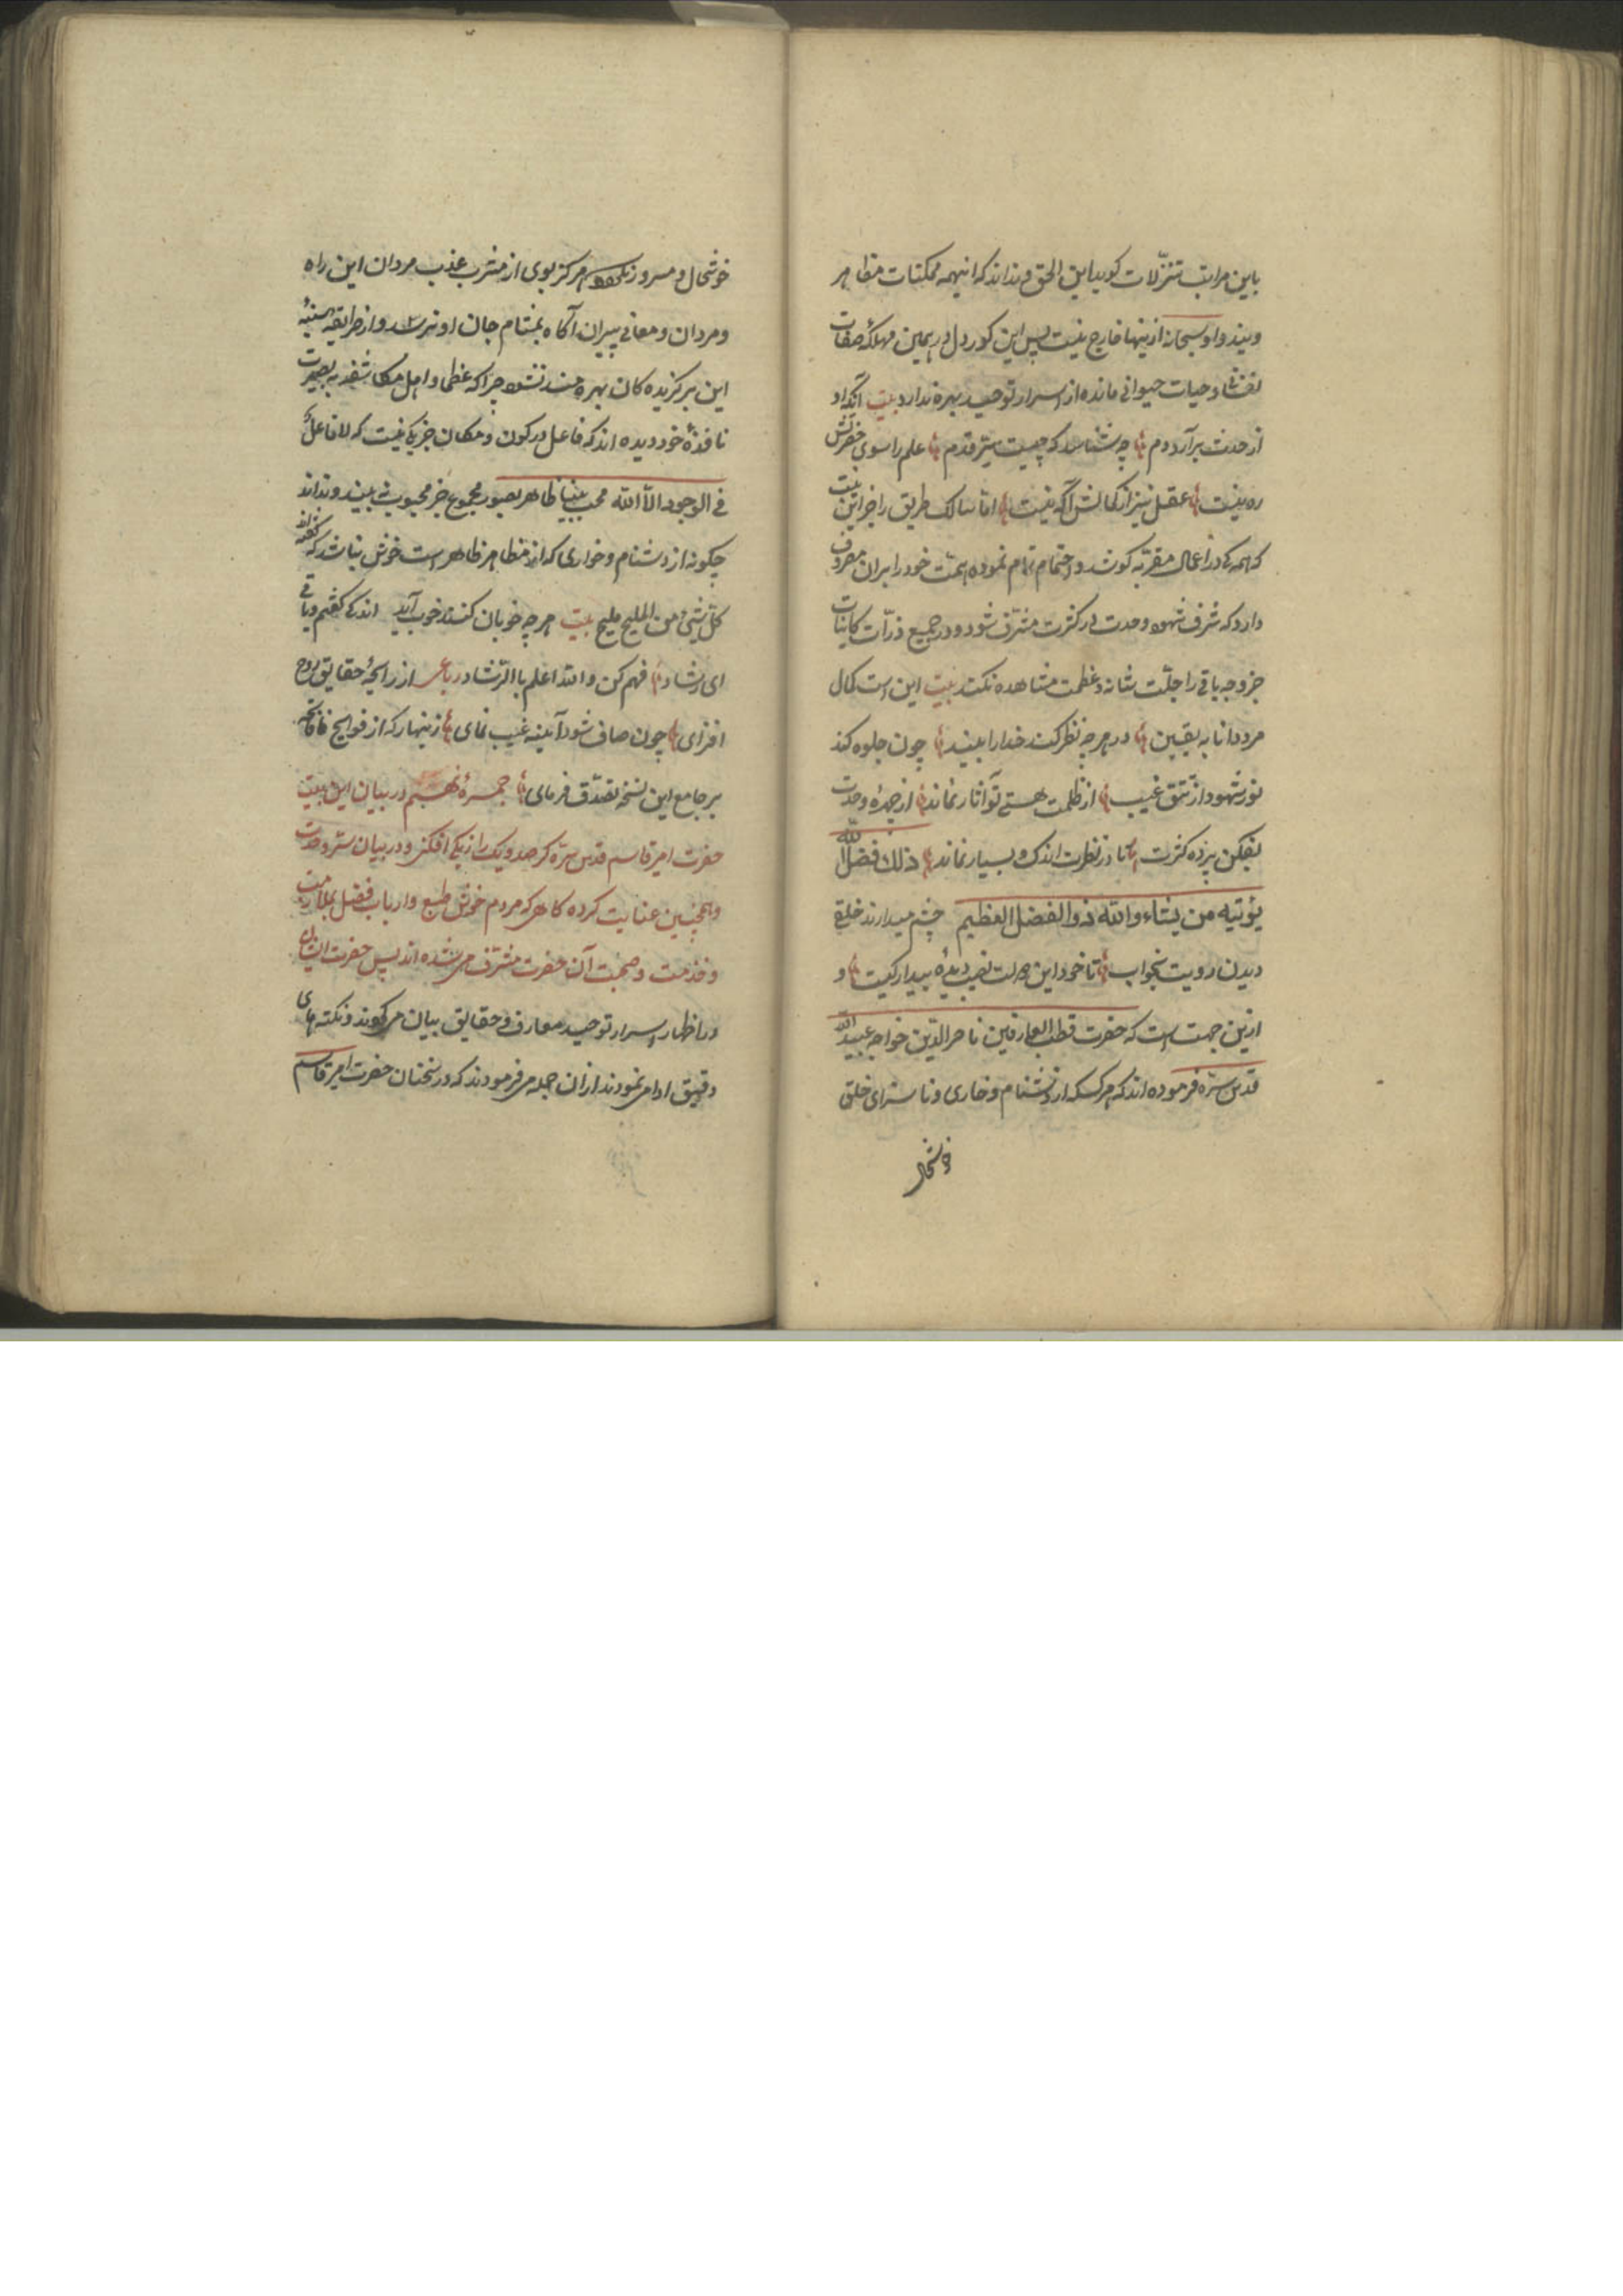 باین مراتب تنزّلات کوید این الحق و نداند که اینهمه ممکنات مظاهر
ویند و او سبحانه ازینها خارج نیست پس این کور دل در همین مهلکهٔ صفات
نفسٰ و حیات حیوانی مانده از اسرار توحید بهره ندارد بیت آنکه او
از حدث برآرد دم چه شناسد که چیست سرّ قدم علم را سوی حضرتش
ره نیست عقل نیز از کمالش آکه نیست امّا سالک طریق را جز این نیست
که همه کی در اعمال مقربه کوشد و اهتمام تمام نموده همّت خود را بران مصروف
دارد که شرف شهود وحدت در کثرت مشرّف شود و در جمیع ذرّات کاینات
جز وجه باقی را جلّت شانه و عظمت مشاهده نکند بیت این است کمال
مرد دانا به یقین در هرچه نظر کند خدا را بیند چون جلوه کند
نور شهود از تتق غیب از ظلمت هستی تو آثار نماند از چهرهٔ وحدت
بفکن پرده کثرت تا در نظرت اندک و بسیار نماند ذلك فضل الله
یؤتیه من یشاء والله ذوالفضل العظیم چشم میدارند خلقی
دیدن رویت بخواب تا خود این دولت نصیب دیدهٔ بیدار کیست و
ازین جهت است که حضرت قطب العارفین ناصرالدّین خواجه عبیدالله
قدس سرّه فرموده اند که هر کسکه از دشنام و خاری و ناسزای خلق
خوشحال
خوشحال و مسرور نکردد هرکز بوی از مشرب عذب مردان این راه
و مردان و معانی پیران آکاه بمشام جان او نرسد و از طریقهٔ سنیهٔ
این برکزیده کان بهره مند نشود چرا که عظما و اهل مکاشفه به بصیرت
نافذهٔ خود دیده اند که فاعل در کون و مکان جز یکی نیست که لا فاعل
فی الوجود الّا الله محب بینا ظاهر بصور مجموع جز محبوب نبیند و نداند
چکونه از دشنام و خواری که از مظاهر ظاهر است خوش نباشد که کفته اند
کلّ شیٔ من الملیح ملیح بیت هرچه خوبان کنند خوب آید اندکی کفتم و باقی
ای رشاد فهم کن والله اعلم بالرّشاد رباعی از رایحهٔ حقایق روح
افزای چون صاف شود آئینه غیب نمای زینهار که از فوایح فاتحه
بر جامع این نسخه تصدّق فرمای جمرهٔ نهم در بیان این بیت
حضرت امیر قاسم قدس سرّه که صد و یک را زیکی افکن و در بیان سرّ وحدت
و همچنین عنایت کرده کاهی که مردم خوش طبع و ارباب فضل بملازمت
و خدمت و صحبت آن حضرت مشرّف می شده اند پس حضرت ایشان
در اظهار اسرار توحید معارف و حقایق بیان می کردند و نکته های
دقیق ادا می نمودند از آن جمله می فرمودند که در سخنان حضرت امیر قاسم